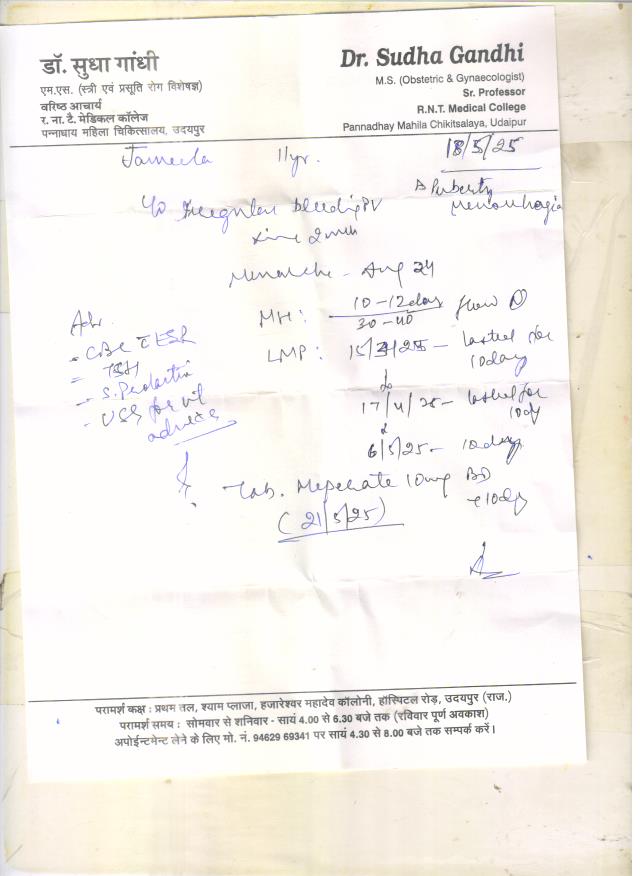 डॉ. सुधा गांधी
एम.एस. (स्त्री एवं प्रसूति रोग विशेषज्ञ)
वरिष्ठ आचार्य
र. ना. टै. मेडिकल कॉलेज
पन्नाधाय महिला चिकित्सालय, उदयपुर
Dr. Sudha Gandhi
M.S. (Obstetric & Gynaecologist)
Sr. Professor
R.N.T. Medical College
Pannadhay Mahila Chikitsalaya, Udaipur
Jameela 11yr. 18/5/25
Puberty
Menorrhagia
Irregular bleeding PV
since 2
Menarche - Aug 24
MH: 10-12 days flow
30-40
LMP: 15/3/25 - lasted for
10 days
17/4/25 - lasted for
10 dy
6/5/25 - 10 days
Adv.
- CBC ESR
- TSH
- S. Prolactin
- USG for
adnexa
Tab. 10 mg BD
10 dy
(21/5/25)
परामर्श कक्ष : प्रथम तल, श्याम प्लाजा, हजारेश्वर महादेव कॉलोनी, हॉस्पिटल रोड़, उदयपुर (राज.)
परामर्श समय : सोमवार से शनिवार - सायं 4.00 से 6.30 बजे तक (रविवार पूर्ण अवकाश)
अपोईन्टमेन्ट लेने के लिए मो. नं. 94629 69341 पर सायं 4.30 से 8.00 बजे तक सम्पर्क करें।